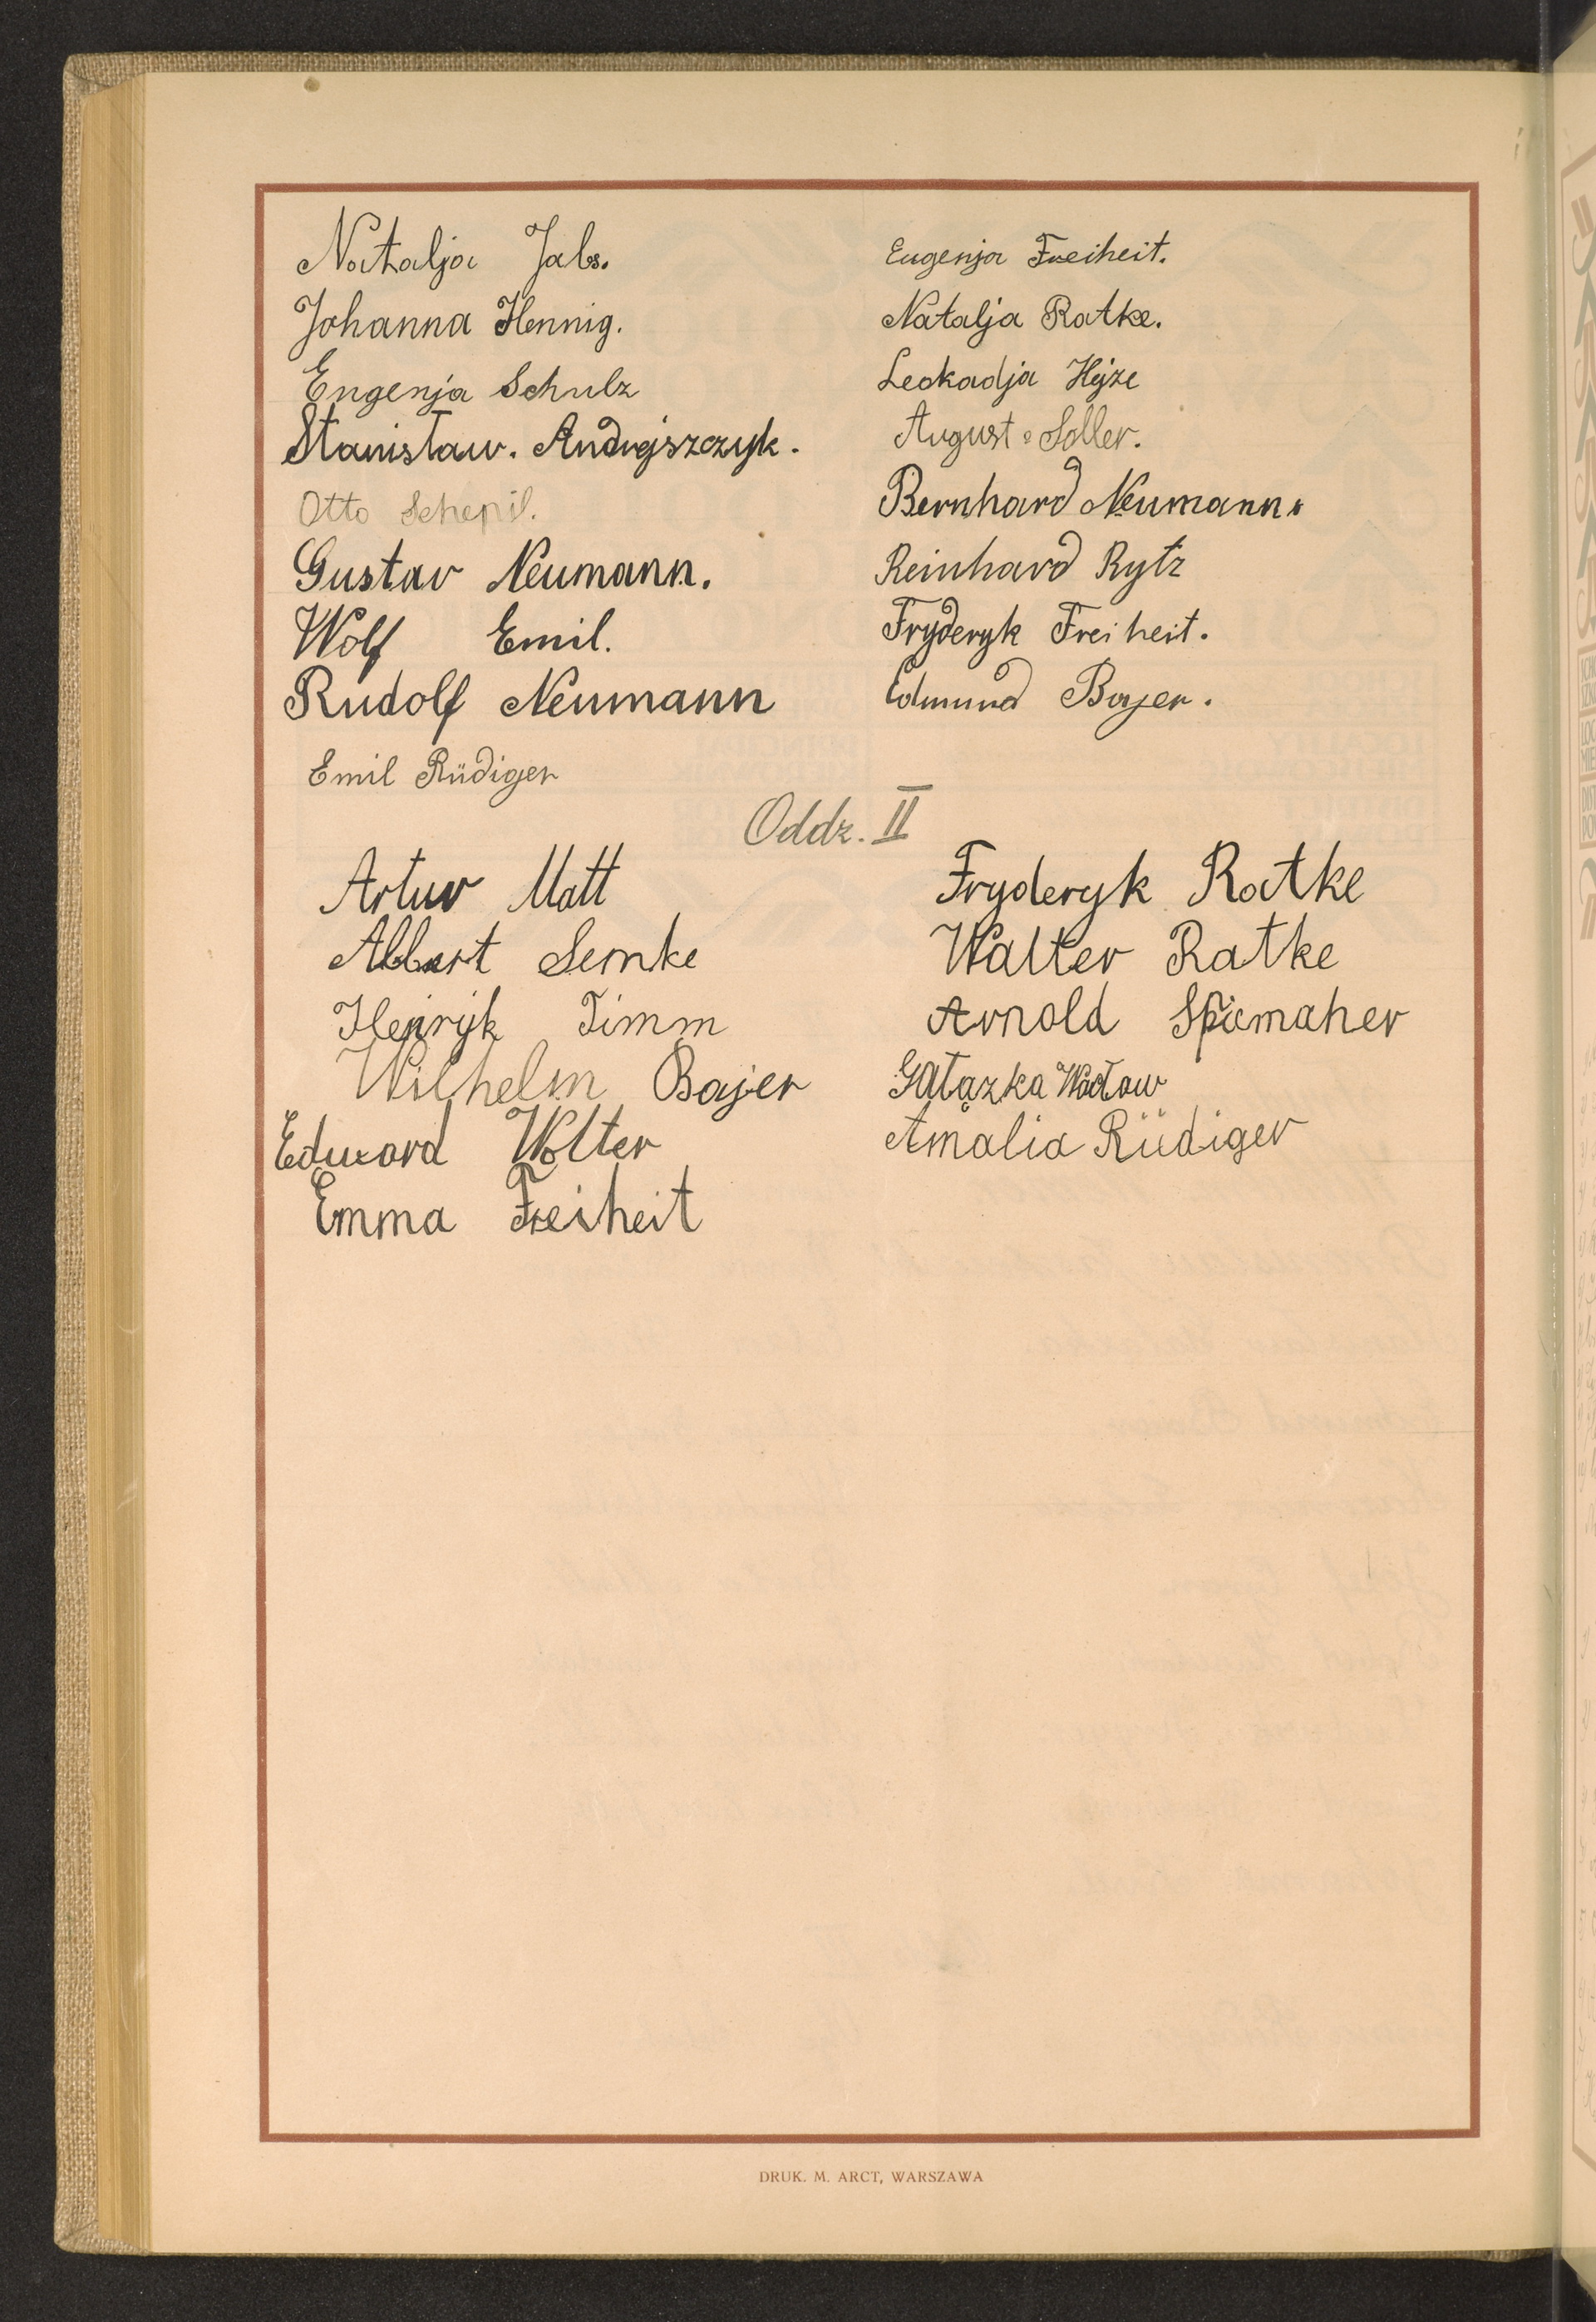 Natalja Jabs.
Johanna Hennig.
Eugenja Schulz
Stanisław. Andrejszczyk.
Otto Schepil.
Gustav Neumann.
Wolf Emil.
Rudolf Neumann
Emil Rüdiger
Eugenja Freiheit.
Natalja Ratke.
Leokadja Hejze
August Soller.
Bernhard Neumann.
Reinhard Rytz
Fryderyk Freiheit.
Edmund Bajer.
Oddz. II
Artur Matt
Albert Semke
Henryk Timm
Wilhelm Bajer
Eduard Wolter
Emma Freiheit
Fryderyk Ratke
Walter Ratke
Arnold
Gałązka Wacław
Amalia Rüdiger
DRUK. M. ARCT, WARSZAWA